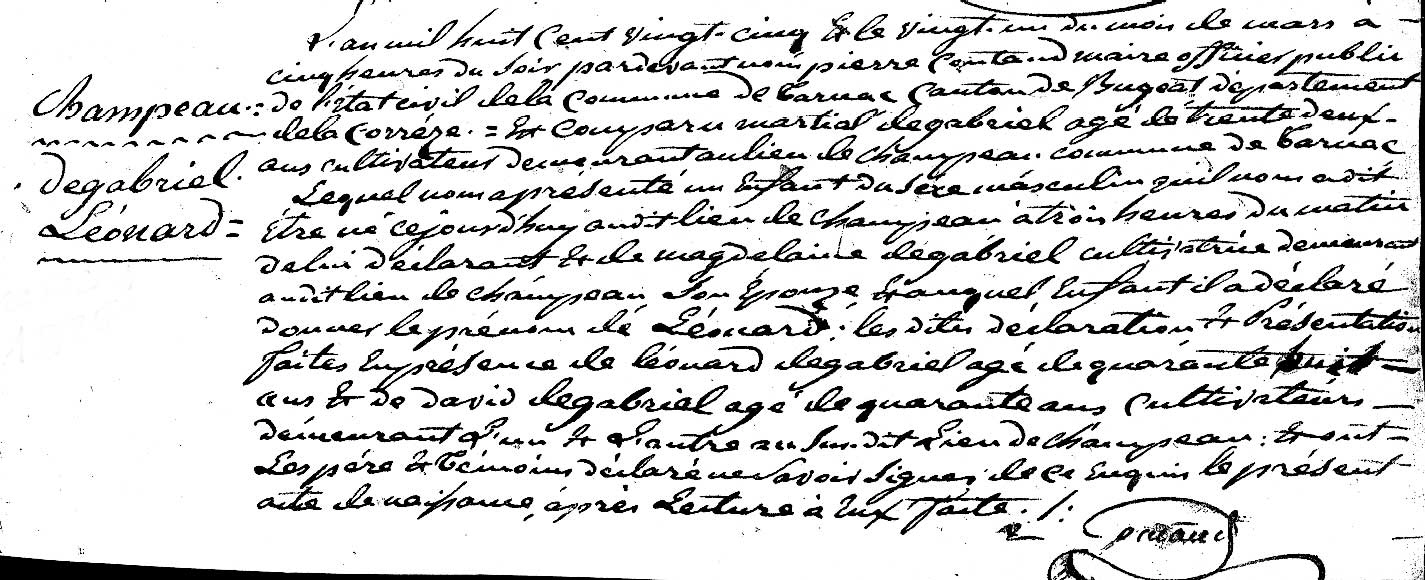 L'an mil huit cent vingt-cinq & le vingt-un du mois de mars à
cinq heures du soir pardevant nous pierre maire officier public
Champeau := de l'état civil de la commune de Tarnac Canton de Bugeat département
de la Corrèze. = Est comparu martial degabriel agé de trente deux-
ans cultivateur demeurant au lieu de champeau commune de Tarnac
degabriel.
Lequel nous a présenté un Enfant du sexe másculin qu'il nous a dit
Léonard = Être né cejourd'huy audit lieu de champeau a trois heures du matin
de lui déclarant & de magdelaine degabriel cultivatrice demeurant
audit lieu de champeau, son Epouze, & auquel Enfant il a déclaré
donner le prénom de Léonard; les dites déclaration & Présentation
faites En présence de léonard degabriel agé de quarante huit —
ans & de david degabriel agé de quarante ans cultivateurs —
démeurant L'un & L'autre au susdit Lieu de champeau: & ont —
Les pére & témoins déclaré ne savoir signer de ce Enquis le présent
acte de naissance, après Lecture à Eux faite. /: